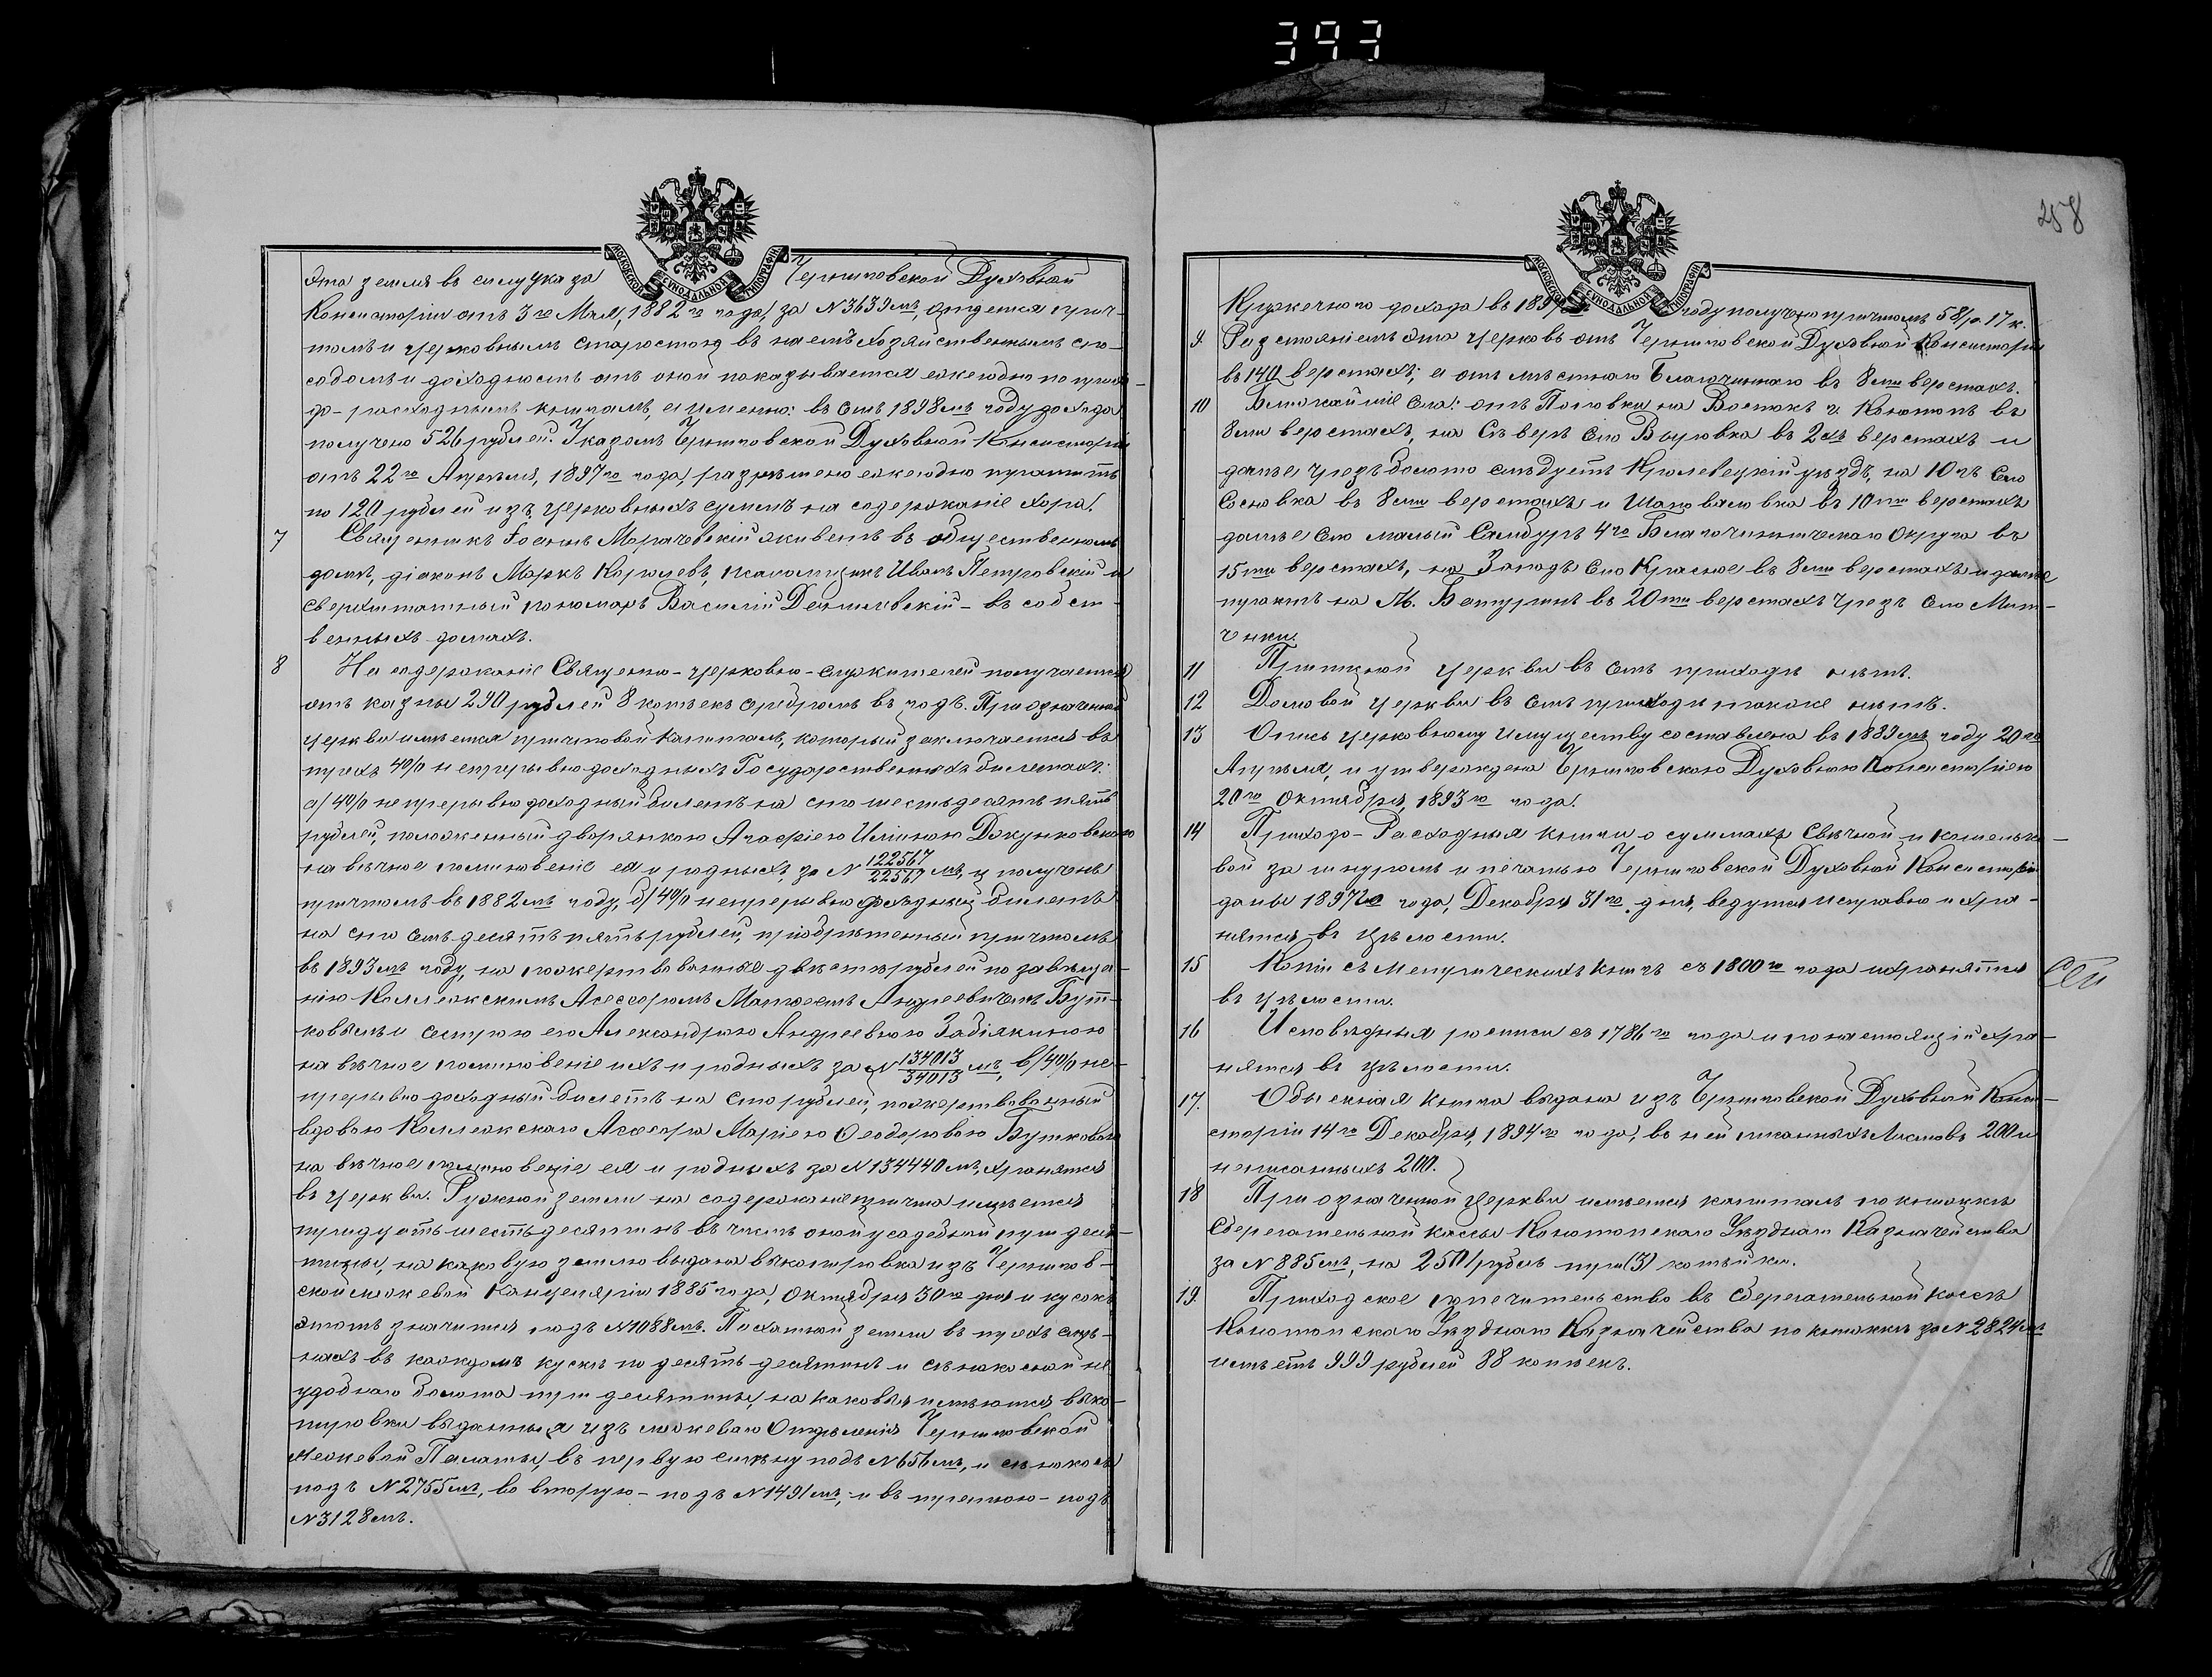 393
258
МОСКОВСКОЙ СѴНОДАЛЬНОЙ ТИПОГРАФІИ.
эта земля въ силу Указа Черниговской Духовной
Консисторіи отъ 3го Мая, 1882го года, за №3639мъ, отдается прич-
томъ и церковнымъ старостою въ наемъ хозяйственнымъ спо-
собомъ и доходность отъ оной показывается ежегодно по прихо-
до-расходнымъ книгамъ, а именно: въ семъ 1898мъ году дохода
получено 526 рублей. Указомъ Черниговской Духовной Консисторіи
отъ 22го Апрѣля, 1897го года, разрѣшено ежегодно платить
по 120 рублей изъ церковныхъ суммъ на содержаніе хора.
7 Священникъ Іоаннъ Морачевскій живетъ въ общественномъ
домѣ, діаконъ Маркъ Королевъ, псаломщикъ Иванъ Петровскій и
сверхштатный пономарь Василій Данилевскій - въ собст-
венныхъ домахъ.
8 На содержаніе Священно-церковно-служителей получается
отъ казны 290 рублей 8 копѣекъ серебромъ въ годъ. При означенной
церкви имѣется причтовой капиталъ, который заключается въ
трехъ 4% непрерывно-доходныхъ Государственныхъ билетахъ:
а/ 4% непрерывно доходный билетъ на сто шестьдесятъ пять
рублей, положенный дворянкою Агафіею Иліиною
на вѣчное поминовеніе ея и родныхъ, за № 122567/22567 мъ, и полученъ
причтомъ въ 1882мъ году, б/ 4% непрерывно доходный билетъ
на сто семьдесятъ пять рублей, пріобрѣтенный причтомъ
въ 1893мъ году, на пожертвованные двѣсти рублей по завѣща-
нію Коллежскимъ Асессоромъ Матѳеемъ Андреевичемъ Бут-
ковымъ и сестрою его Александрою Андреевною Забіякиною
на вѣчное поминовеніе ихъ и родныхъ за № 134013/34013 мъ, в/ 4% не-
прерывно доходный билетъ на сто рублей, пожертвованный
вдовою Коллежскаго Асесора Маріею Ѳеодоровою Бутковою
на вѣчное поминовеніе ея и родныхъ за №134440мъ, хранятся
въ церкви. Ружной земли на содержаніе причта имѣется
тридцать шесть десятинъ въ числѣ оной усадебной три деся-
тины, на каковую землю выдана выкопировка изъ Чернигов-
ской межевой Канцеляріи 1885 года, Октября 30го дня и кусокъ
этотъ значится подъ №1088мъ. Пахатной земли въ трехъ смѣ-
нахъ въ каждомъ кускѣ по десять десятинъ и сѣнокосной не
удобнаго болота три десятины, на каковыя имѣются выко-
пировки выданныя изъ межеваго Отдѣленія Черниговской
Межевой Палаты, въ первую смѣну подъ №656мъ, и сѣнокосъ
подъ №2755мъ, во вторую - подъ №1491мъ, и въ третью - подъ
№3128мъ.
МОСКОВСКОЙ СѴНОДАЛЬНОЙ ТИПОГРАФІИ.
Кружечнаго дохода въ 1897 году получено причтомъ 58 р. 17 к.
9. Разстояніемъ эта церковь отъ Черниговской Духовной Консисторіи
въ 140 верстахъ; а отъ мѣстнаго Благочиннаго въ 8ми верстахъ.
10 Ближайшіе села: отъ Поповки на Востокъ г. Конотопъ въ
8ми верстахъ, на Сѣверъ село Выровка въ 2хъ верстахъ и
далѣе чрезъ болото слѣдуетъ Кролевецкій уѣздъ, на Югъ село
Сосновка въ 8ми верстахъ и Шаповаловка въ 10ти верстахъ
далѣе село малый Самбуръ 4го Благочинническаго Округа въ
15ти верстахъ, на Западъ село Красное въ 8ми верстахъ и далѣе
трактъ на М. Батуринъ въ 20ти верстахъ чрезъ село Мит-
ченки.
11 Приписной церкви въ семъ приходѣ нѣтъ.
12 Домовой церкви въ семъ приходѣ также нѣтъ.
13 Опись церковному имуществу составлена въ 1889мъ году 20го
Апрѣля, и утверждена Черниговскою Духовною Консисторіею
20го Октября, 1893го года.
14 Приходо-Расходныя книги о суммахъ Свѣчной и кошелько-
вой за шнуромъ и печатью Черниговской Духовной Консисторіи
даны 1897го года, Декабря 31го дня, ведутся исправно и хра-
нятся въ цѣлости.
15 Копіи съ Метрическихъ книгъ съ 1800го года и хранятся
въ цѣлости.
16 Исповѣдныя росписи съ 1786го года и по настоящій хра-
нятся въ цѣлости.
17. Обыскная книга выдана изъ Черниговской Духовной Конси-
сторіи 14го Декабря, 1894го года, въ ней писанныхъ Листовъ 200 и
неписанныхъ 200.
18 При означенной церкви имѣется капиталъ по книжкѣ
Сберегательной кассы Конотопскаго Уѣзднаго Казначейства
за №885мъ, на 2501 рубль три (3) копѣйки.
19. Приходское попечительство въ Сберегательной кассѣ
Конотопскаго Уѣзднаго Казначейства по книжкѣ за №2824мъ
имѣетъ 999 рублей 88 копѣекъ.